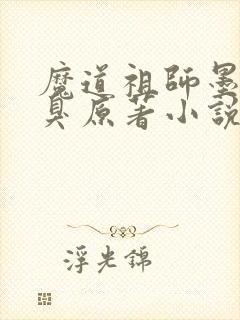 魔道祖師墨
臭原著小說
浮光錦